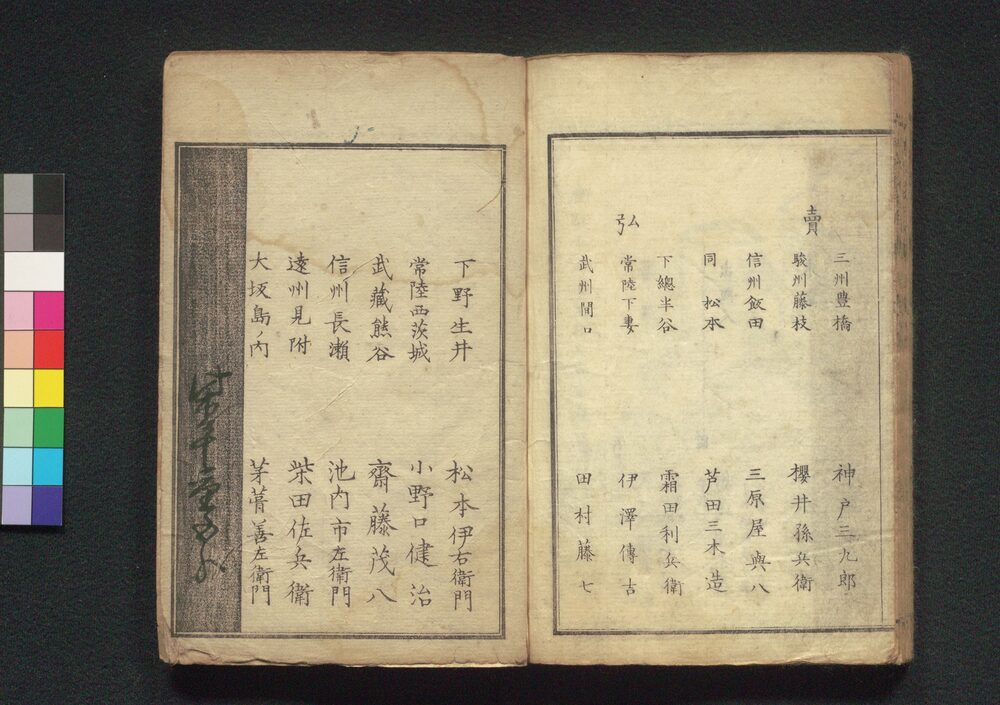 賣
弘
三州豊橋 神戸三九郎
駿州藤枝 櫻井孫兵衛
信州飯田 三原屋與八
同 松本 芦田三木造
下總半谷 霜田利兵衛
常陸下妻 伊澤傳古
武州間口 田村藤七
下野生井 松本伊右衛門
常陸西茨城 小野口健治
武藏熊谷 齋藤茂八
信州長瀬 池内市左衛門
遠州見附 柴田佐兵衛
大坂島ノ内 善左衛門